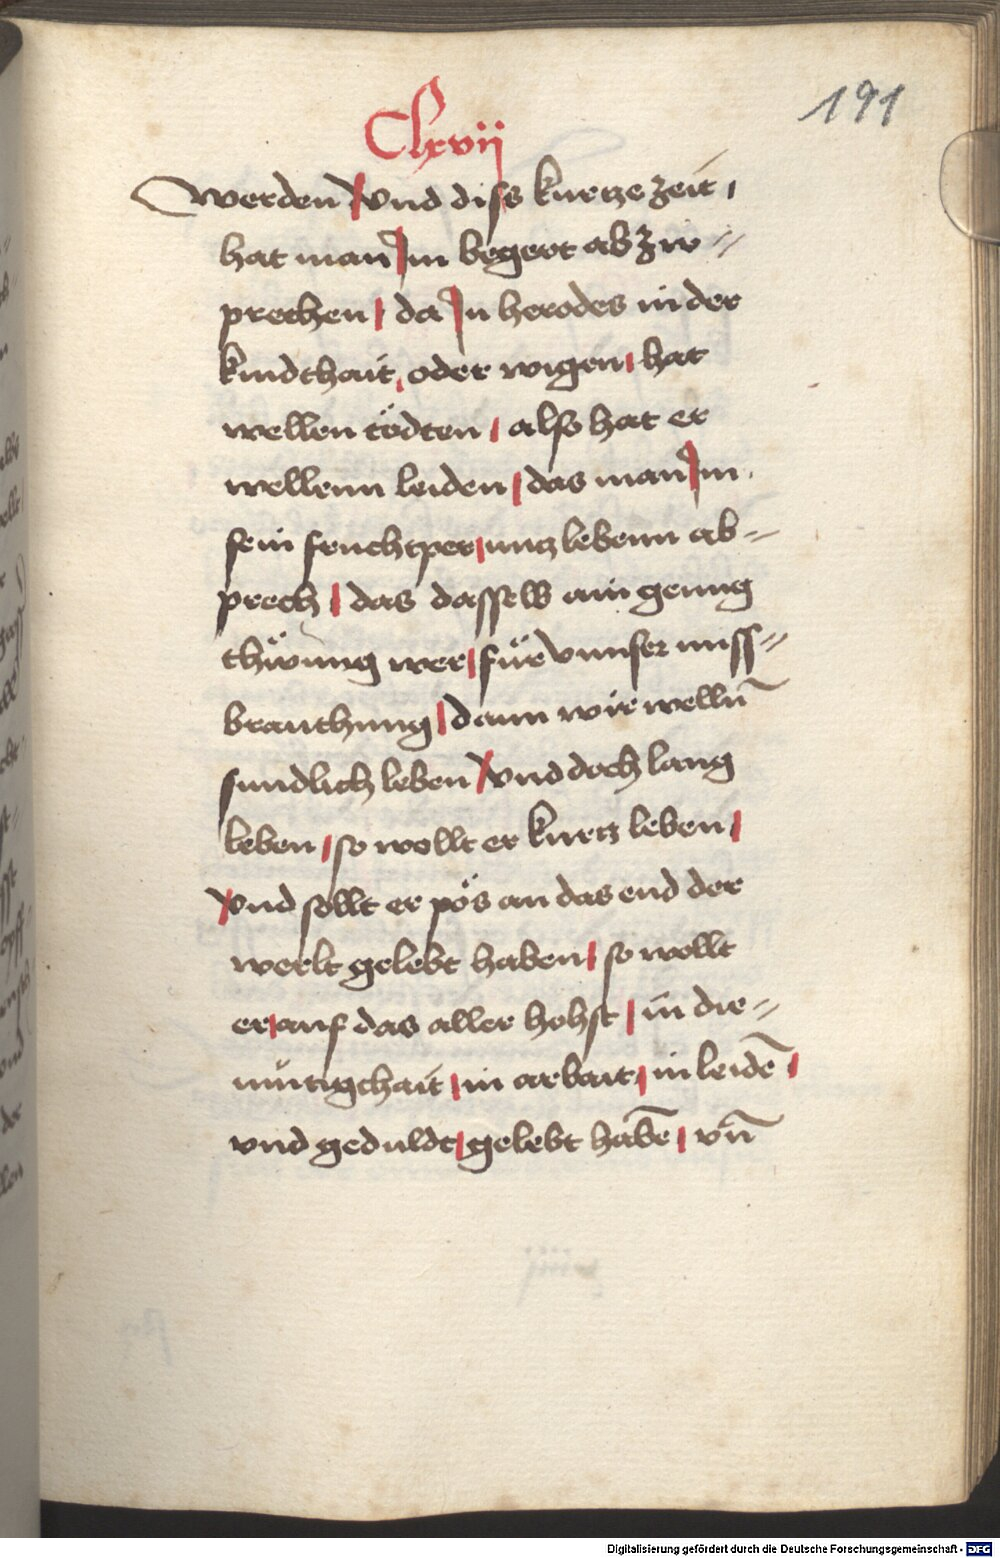 191
Clxvii
werden / vnd diss kurtze zeit /
hat man Im begert ab zw =
prechen / da In herodes in der
kindthait, oder wigen / hat
wellen tödten / also hat er
wellenn leiden / das man Im
sein fruchtper / nutz lebenn ab =
prech / das dasselb ain genug
thüung wer / für vnnser miss =
brauchung / dann wir wellñ
sundlich leben / vnd doch lang
leben / so wollt er kurtz leben /
vnd sollt er pös an das end der
werlt gelebt haben / so wollt
er / auf das aller hohst / in die =
mütigchait / in arbait / in leidē /
vnd geduldt / gelebt habē / vñ
Digitalisierung gefördert durch die Deutsche Forschungsgemeinschaft - DFG